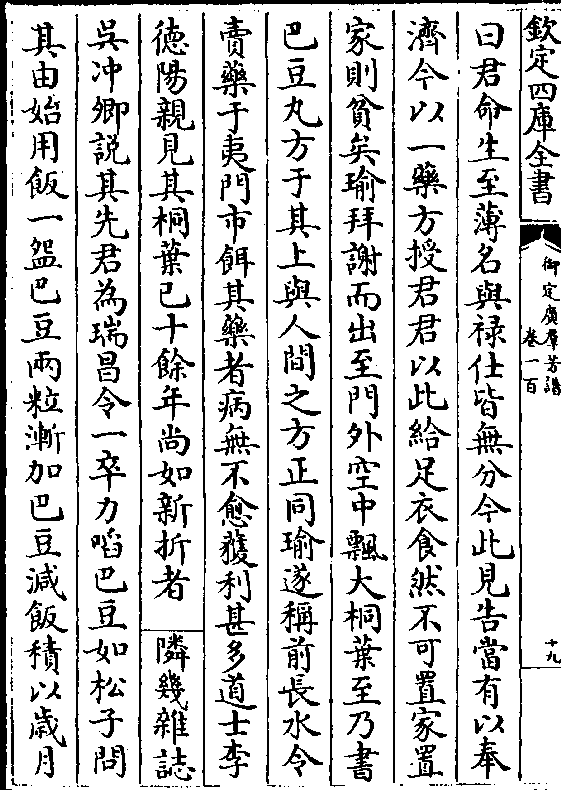 欽定四庫全書
御定廣羣芳譜
卷一百
十九
曰君命生至薄名與禄仕皆無分今此見告當有以奉
濟今以一藥方授君君以此給足衣食然不可置家置
家則貧矣瑜拜謝而出至門外空中飄大桐葉至乃書
巴豆丸方于其上與人間之方正同瑜遂稱前長水令
賣藥于夷門市餌其藥者病無不愈獲利甚多道士李
徳陽親見其桐葉已十餘年尚如新折者
隣幾雜誌
吳冲卿說其先君為瑞昌令一卒力啗巴豆如松子問
其由始用飯一盌巴豆兩粒漸加巴豆減飯積以歲月